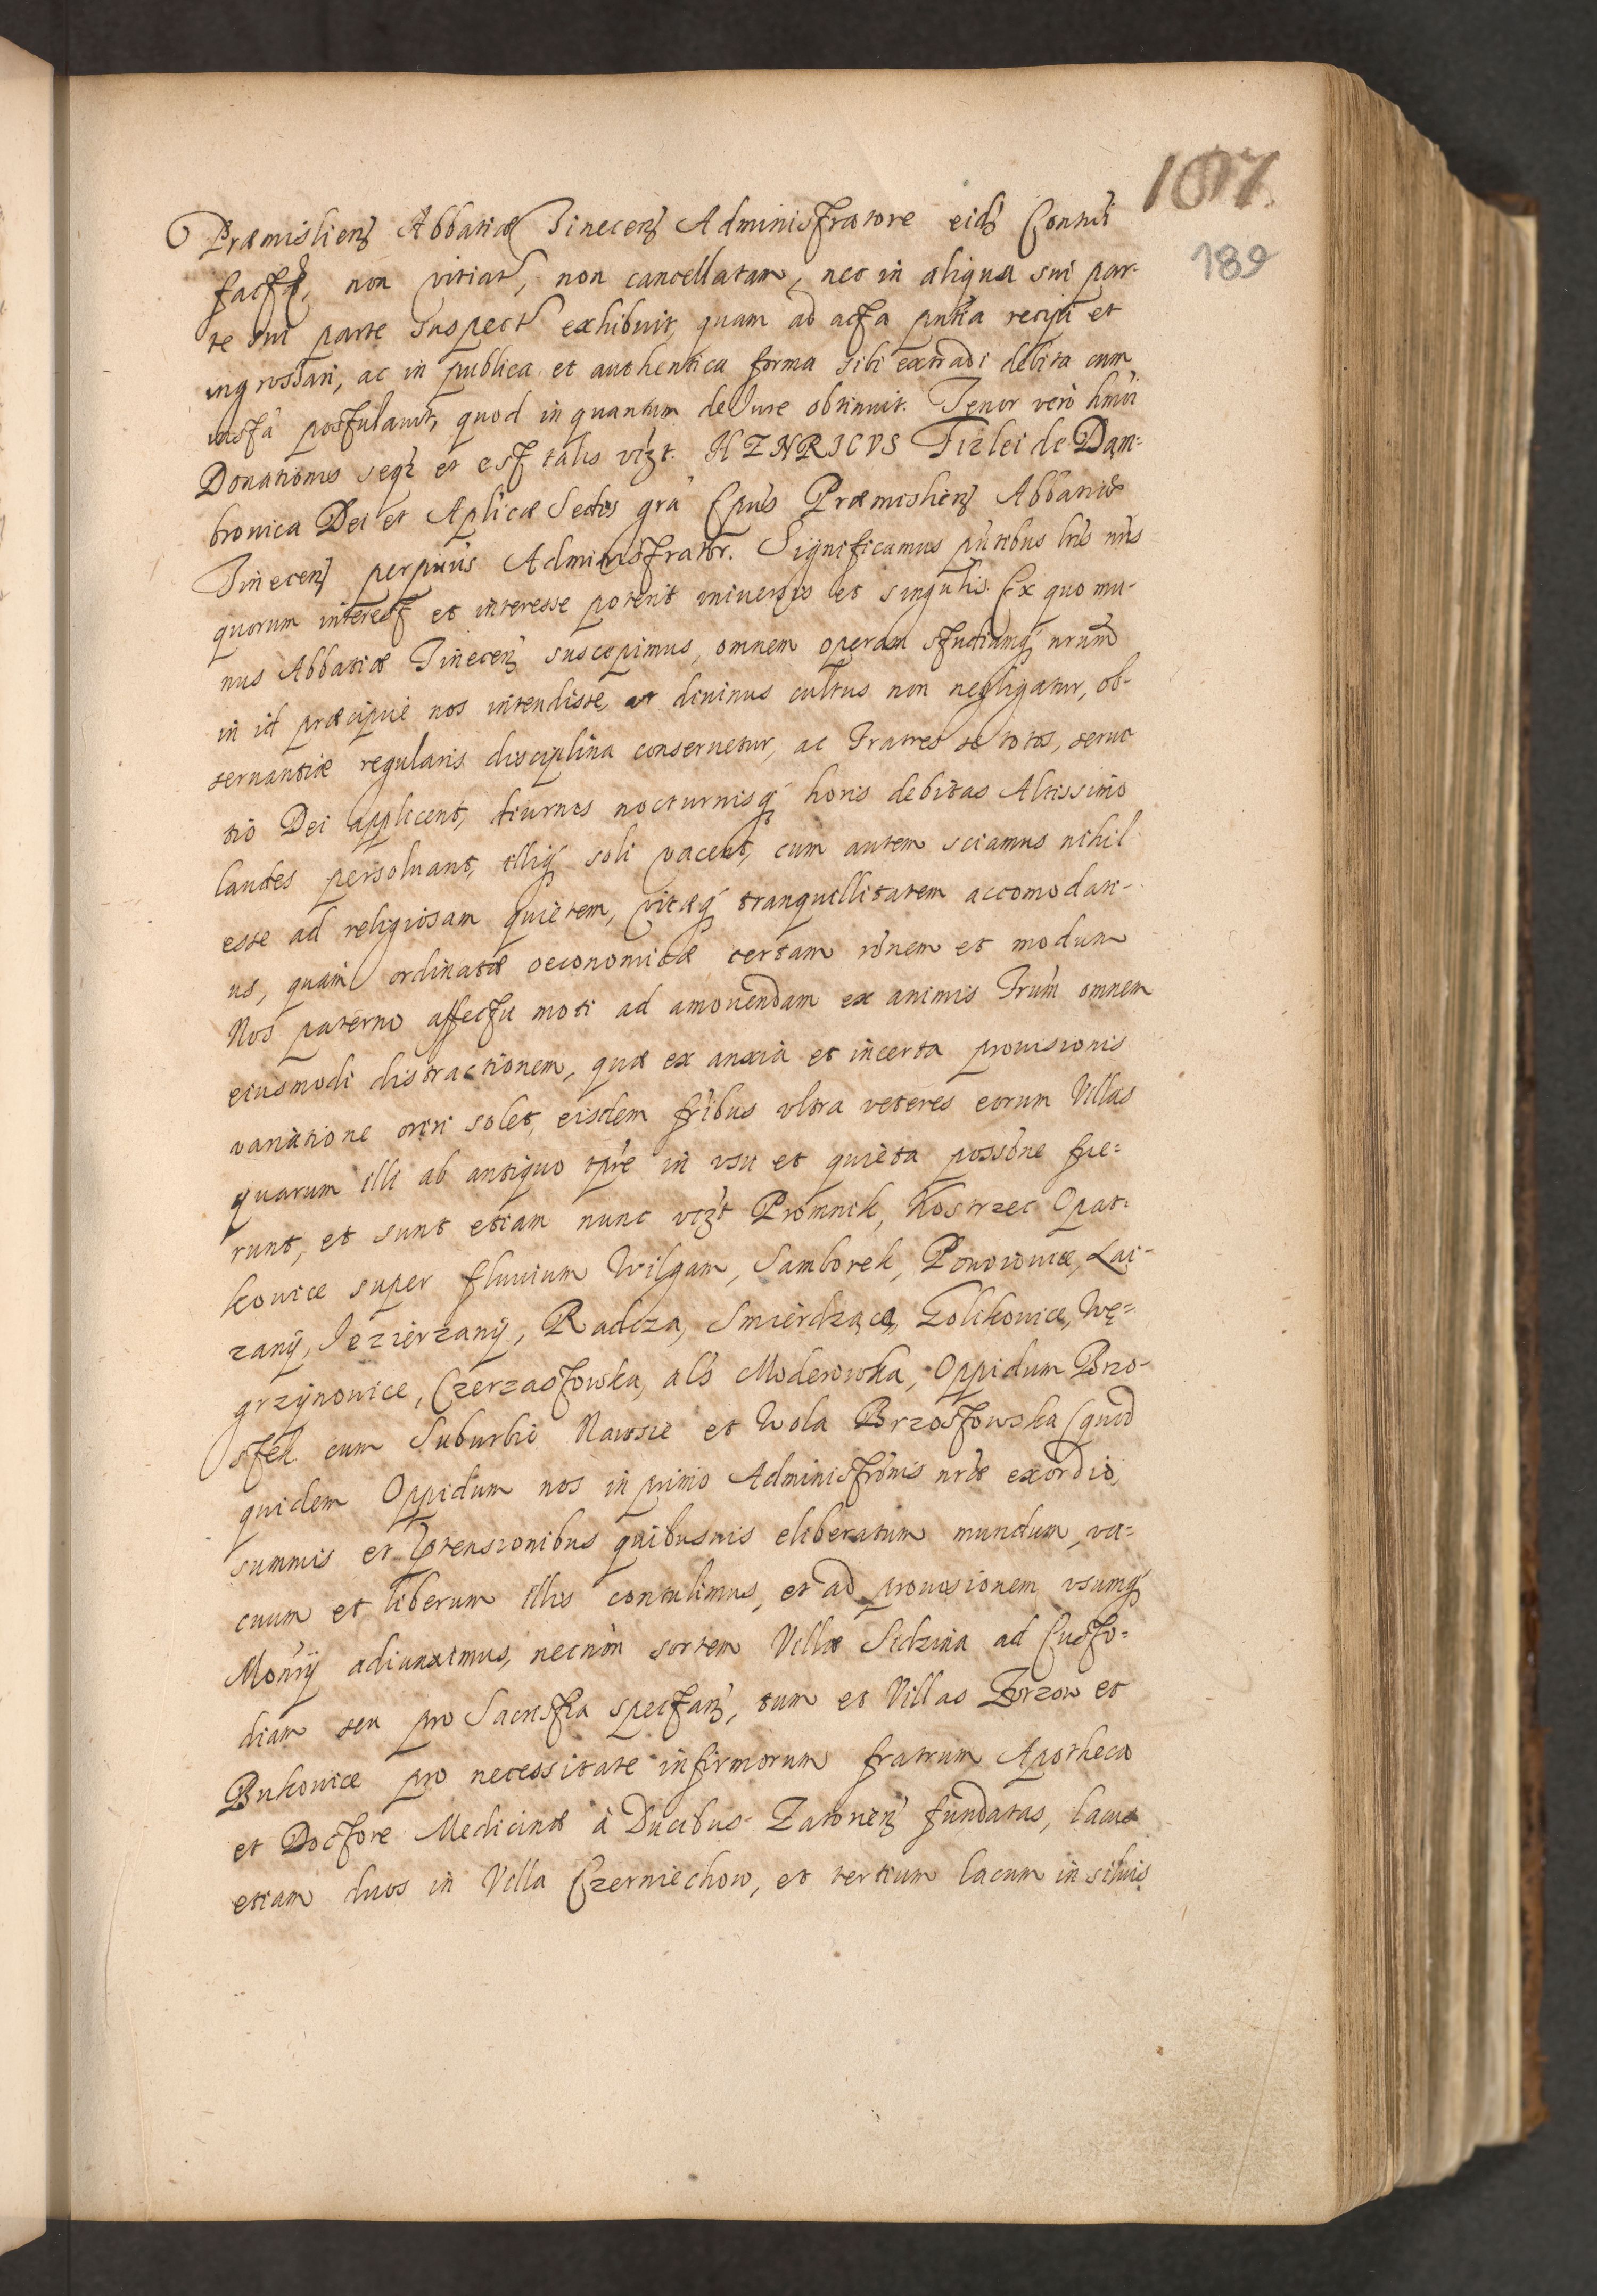 107.
189
Præmislienȝ Abbatiæ Tinecenȝ Administratore eidȝ Contui
factā, non vitiat, non cancellatam, nec in aliqua sui par-
te sui parte suspect exhibuit, quam ad acta pntia recipi et
ingrossari, ac in publica et authentica forma sibi extradi debita cum
instā postulavit, quod in quantum de Jure obtinuit. Tenor vero hmōi
Donationis seqr et est talis vizt. HENRICVS Firlei de Dam-
browica Dei et Aplicæ Sedis grā Epus Præmislienȝ Abbatiæ
Tinecenȝ perpuus Administrator. Significamus pntibus lris nris
quorum interest et interesse poterit vniuersis et singulis. Ex quo mu-
nus Abbatiæ Tinecenȝ suscepimus, omnem operam studiumq nrum
in id præcipue nos intendisse, vt diuinus cultus non negligatur, ob-
seruantiæ regularis disciplina conseruetur, ac Fratres se totos, serui-
tio Dei applicent, diurnis nocturnisq horis debitas Altissimo
laudes persoluant, illiq soli vacent, cum autem sciamus nihil
esse ad religiosam quietem, vitæq tranquillitatem accomodati-
us, quam ordinatæ oeconomicæ certam rōnem et modum
Nos paterno affectu moti ad amouendam ex animis Frum omnem
eiusmodi distractionem, quæ ex anxia et incerta prouisionis
variatione oriri solet, eisdem fribus vltra veteres eorum Villas
quarum illi ab antiquo tpre in vsu et quieta possōne fue-
runt, et sunt etiam nunc vizt Promnik, Kostrzec Opat-
kowice super fluuium Wilgam, Samborek, Pozowice, Lai-
zany, Jezierzany, Radcza, Smierdzącą, Zolikowice, Wę-
grzynowice, Czerzastowska, als Moderowka, Oppidum Brzo-
stek cum Suburbio Nawsie et Wola Brzostowska (quod
quidem Oppidum nos in primo Administrōnis nræ exordio,
summis et prtensionibus quibusuis eliberatum mundum, va-
cuum et liberum illis contulimus, et ad prouisionem vsumq
Monrij adiunximus, necnon sortem Villæ Sidzina ad Custo-
diam seu pro Sacristia spectanȝ, tum et Villas Zorzow et
Bukowice pro necessitate infirmorum fratrum Apotheca
et Doctore Medicinæ à Ducibus Zatorienȝ fundatas, lacus
etiam duos in Villa Czerniechow, et tertium lacum in siluis